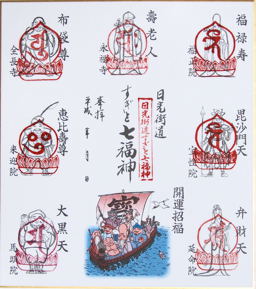 福禄寿
福正院
壽老人
永福寺
布袋尊
全長寺
毘沙門天
宝性院
日光街道
日光街道すぎと七福神
すぎと七福神
奉拝
平成 年 月 日
恵比寿尊
来迎院
弁財天
延命院
開運招福
寳
大黒天
馬頭院